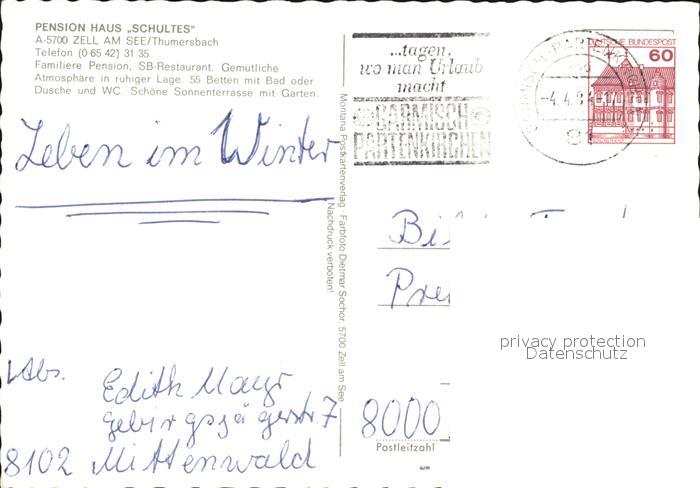 PENSION HAUS „SCHULTES"
A-5700 ZELL AM SEE/Thumersbach
Telefon (0 65 42) 31 35
Familiere Pension, SB-Restaurant. Gemütliche
Atmosphäre in ruhiger Lage. 55 Betten mit Bad oder
Dusche und WC. Schöne Sonnenterrasse mit Garten.
Leben im Winter
Abs. Edith Mayr
Gebirgsjägerstr. 7
8102 Mittenwald
Montana Postkartenverlag Farbfoto Dietmar Sochor, 5700 Zell am See
Nachdruck verboten!
...tagen,
wo man Urlaub
macht
GARMISCH
PARTENKIRCHEN
-4.4.8
81
DEUTSCHE BUNDESPOST
60
privacy protection
Datenschutz
8000
Postleitzahl